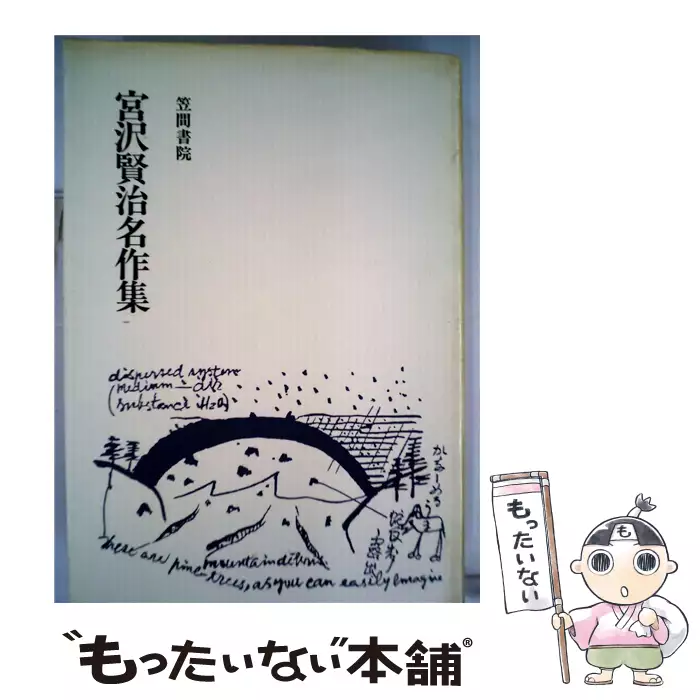 笠間書院
宮沢賢治名作集
一
dispersed system
(medium — air
(substance H2O)
かるーめる
these are pine trees, as you can easily imagine
mountain debris
もったいない
も
"もったいない"本舗®